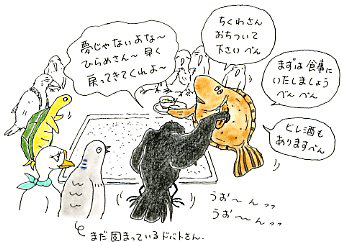 夢じゃないよな〜
ひらめさん〜 早く
戻ってきてくれよ〜
ちくわさん
おちついて
下さいべん
まずは食事に
いたしましょう
べんべん
ヒレ酒も
ありますべん
うお〜んッッ
うお〜んッッ
まだ固まっているドバトさん.